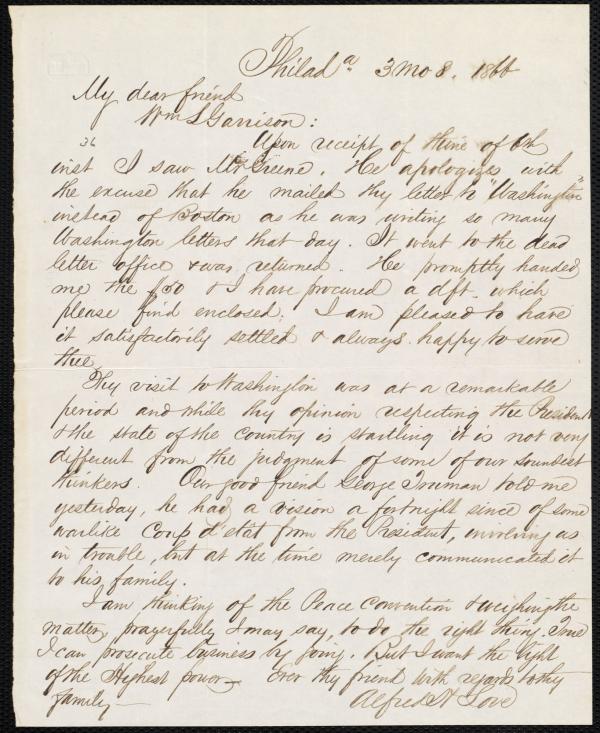 Philada 3 mo 8. 1866
My dear friend
Wm L Garrison:
36
Upon receipt of thine of 6th
inst I saw Mr Greene. He apologizes with
the excuse that he mailed thy letter to "Washington"
instead of Boston as he was writing so many
Washington letters that day. It went to the dead
letter office & was returned. He promptly handed
me the $50 & I have procured a dft. which
please find enclosed. I am pleased to have
it satisfactorily settled & always happy to serve
thee.
Thy visit to Washington was at a remarkable
period and while thy opinion respecting the President
& the state of the country is startling it is not very
different from the judgment of some of our soundest
thinkers. Our good friend George Truman told me
yesterday, he had a vision a fortnight since of some
warlike Coup d'etat from the President, involving us
in trouble, but at the time merely communicated it
to his family.
I am thinking of the Peace Convention & weighing the
matter, prayerfully I may say, to do the right thing. True
I can prosecute business by going. But I want the light
of the Highest power— Ever thy friend with regards to thy
family— Alfred H Love